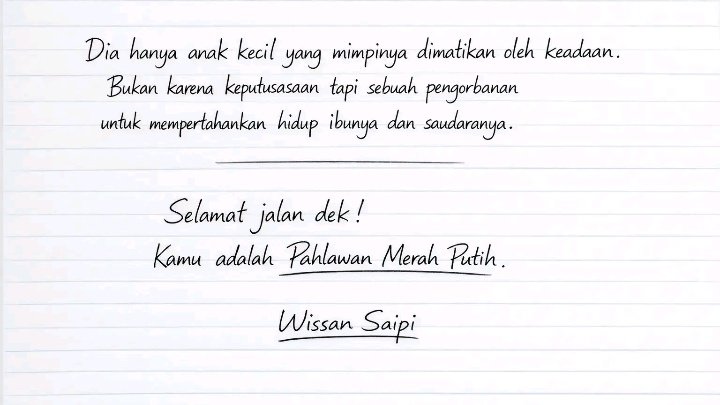 Dia hanya anak kecil yang mimpinya dimatikan oleh keadaan.
Bukan karena keputusasaan tapi sebuah pengorbanan
untuk mempertahankan hidup ibunya dan saudaranya.
Selamat jalan dek!
Kamu adalah Pahlawan Merah Putih.
Wissan Saipi